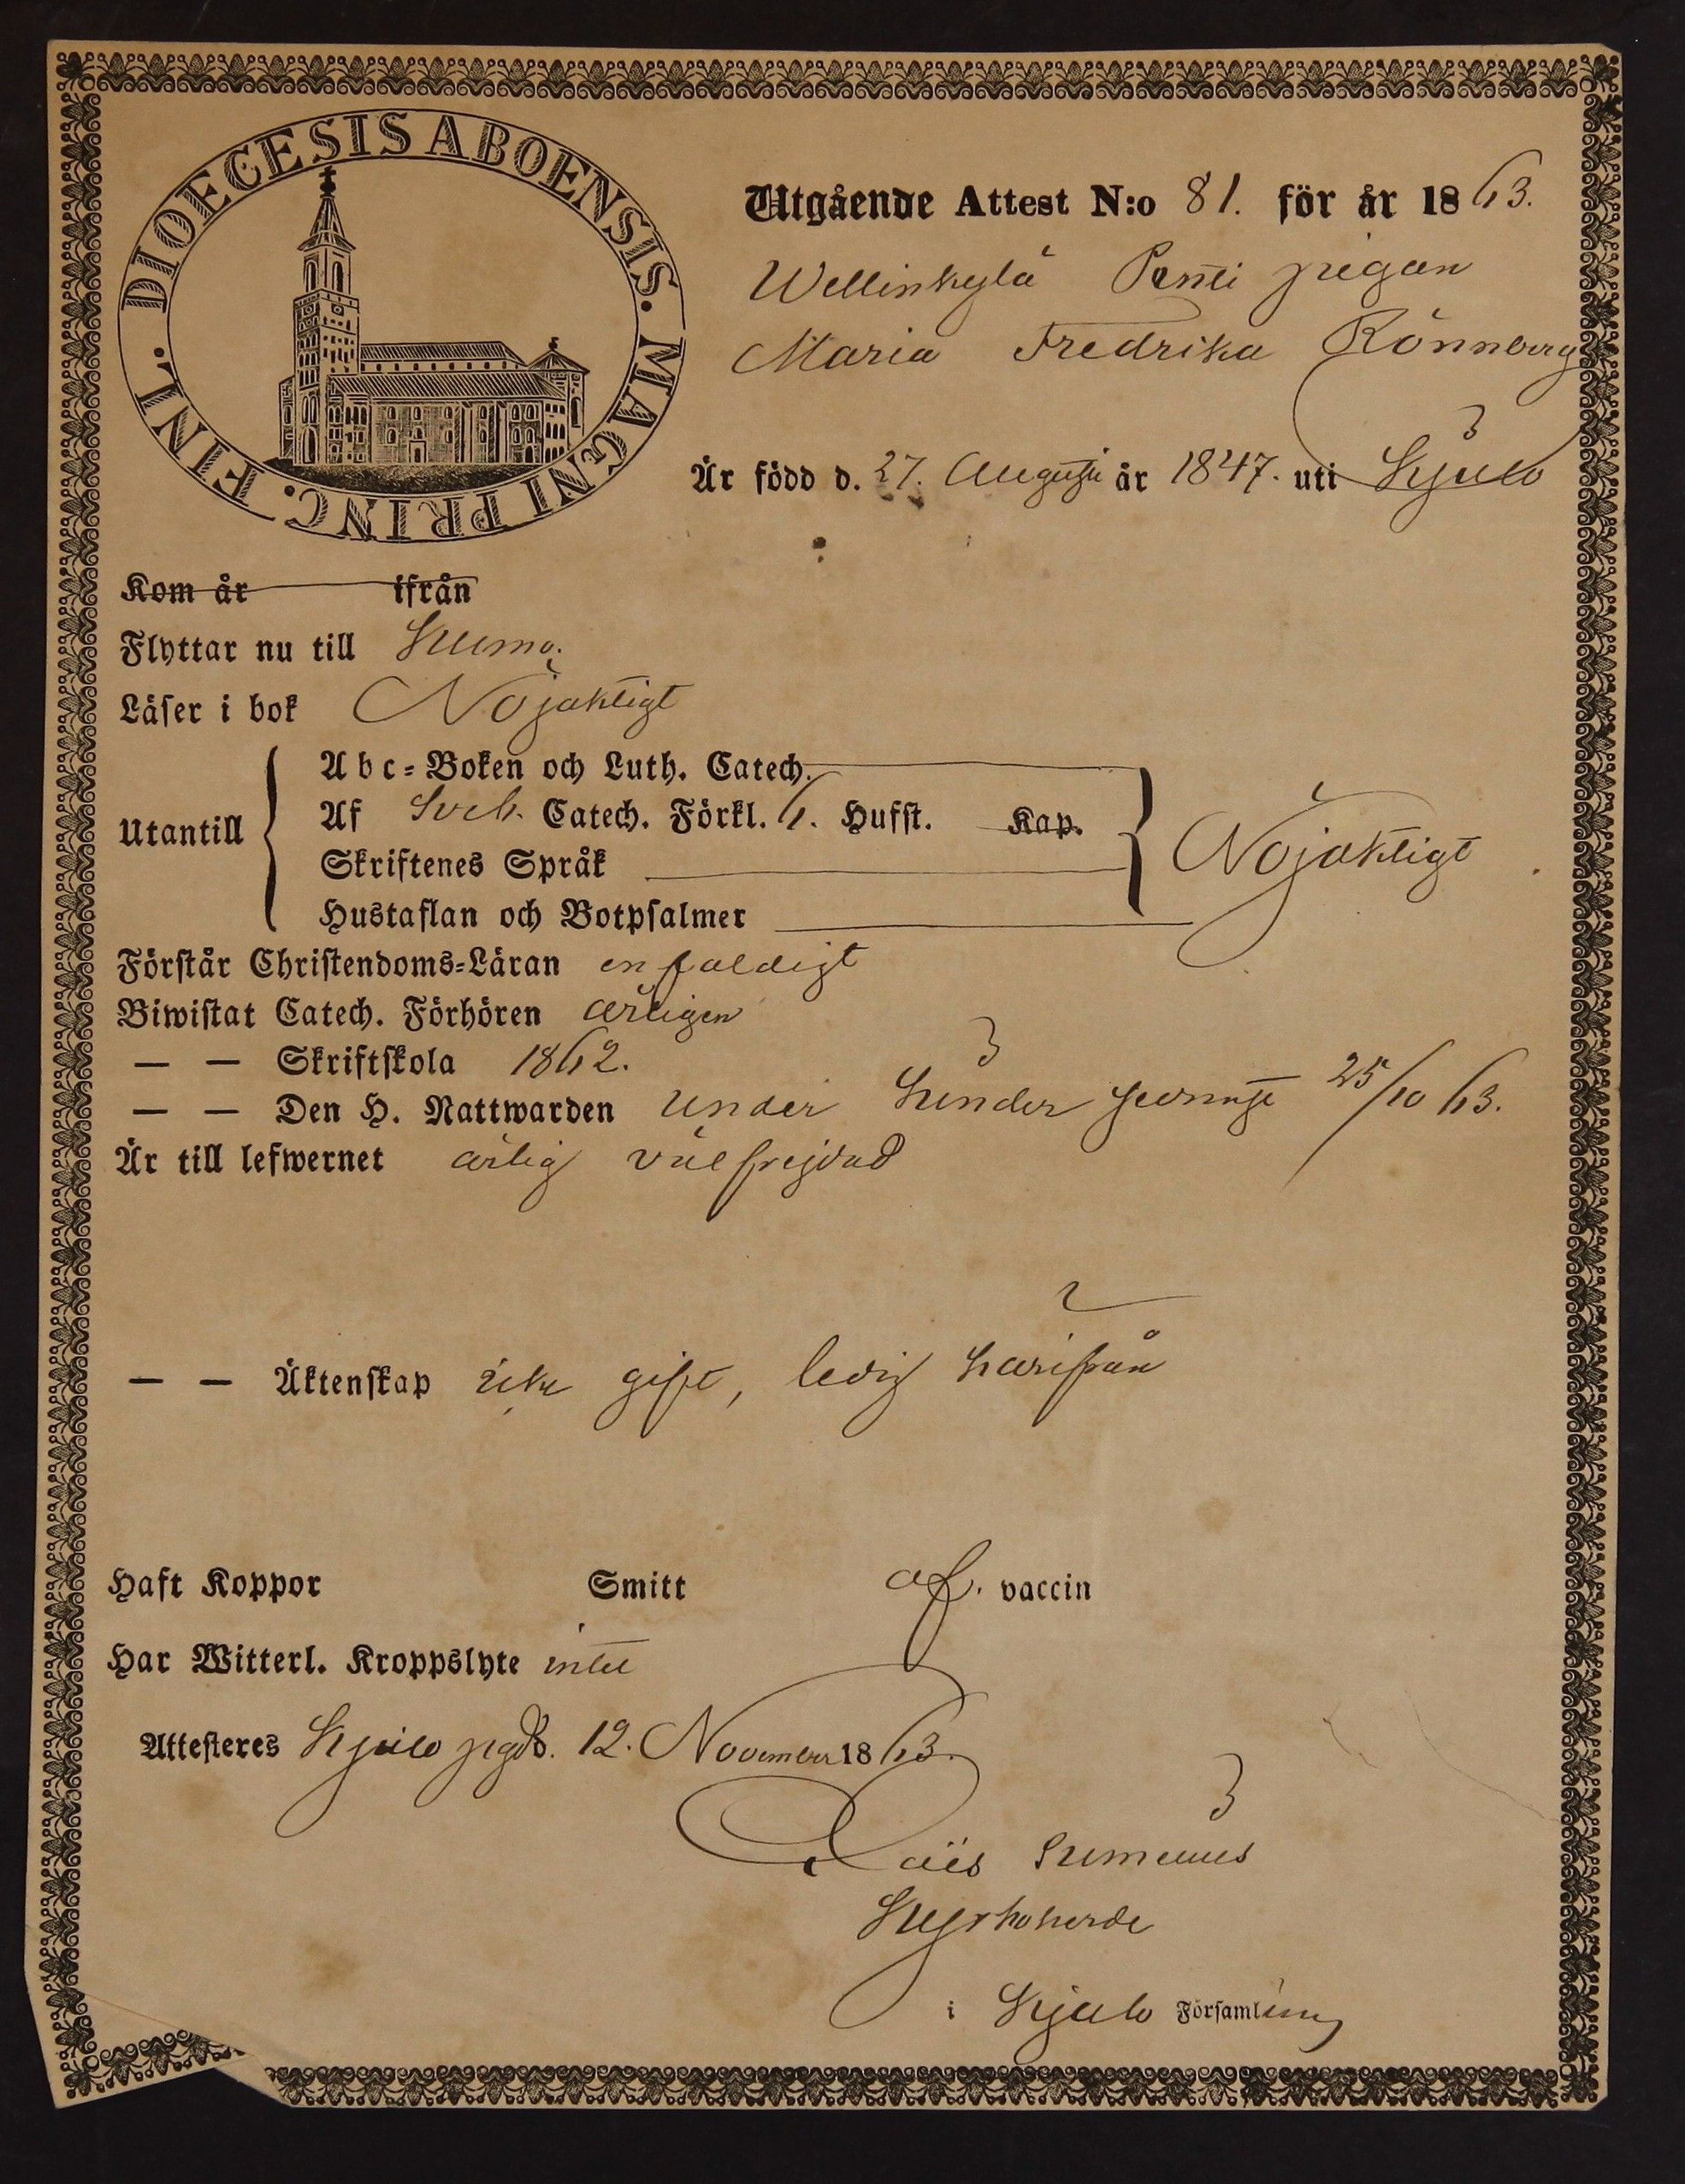 DIOECESIS ABOENSIS. MAGNI PRINC. FINL.
Utgående Attest N:o 81. för år 1863.
Wellinkylä Penti pigan
Maria Fredrika Rönnberg
Är född d. 27. Augusti år 1847. uti Kjulo
Kom år ifrån
Flyttar nu till Kumo.
Läser i bok Nöjaktigt
Abc-Boken och Luth. Catech.
Utantill Af Sveb. Catech. Förkl. 6. Hufst. Kap. Nöjaktigt
Skriftenes Språk
Hustaflan och Botpsalmer
Förstår Christendoms-Läran enfaldigt
Biwistat Catech. Förhören årligen
— — Skriftskola 1862.
— — Den H. Nattwarden under 25/10 63.
Är till lefwernet ärlig välfrejdad
— — Äktenskap icke gift, ledig härifrån
Haft Koppor Smitt af. vaccin
Har Witterl. Kroppslyte intet
Attesteres Kjulo pgd. 12. November 1863.
Kyrkoherde
i Kjulo Församling